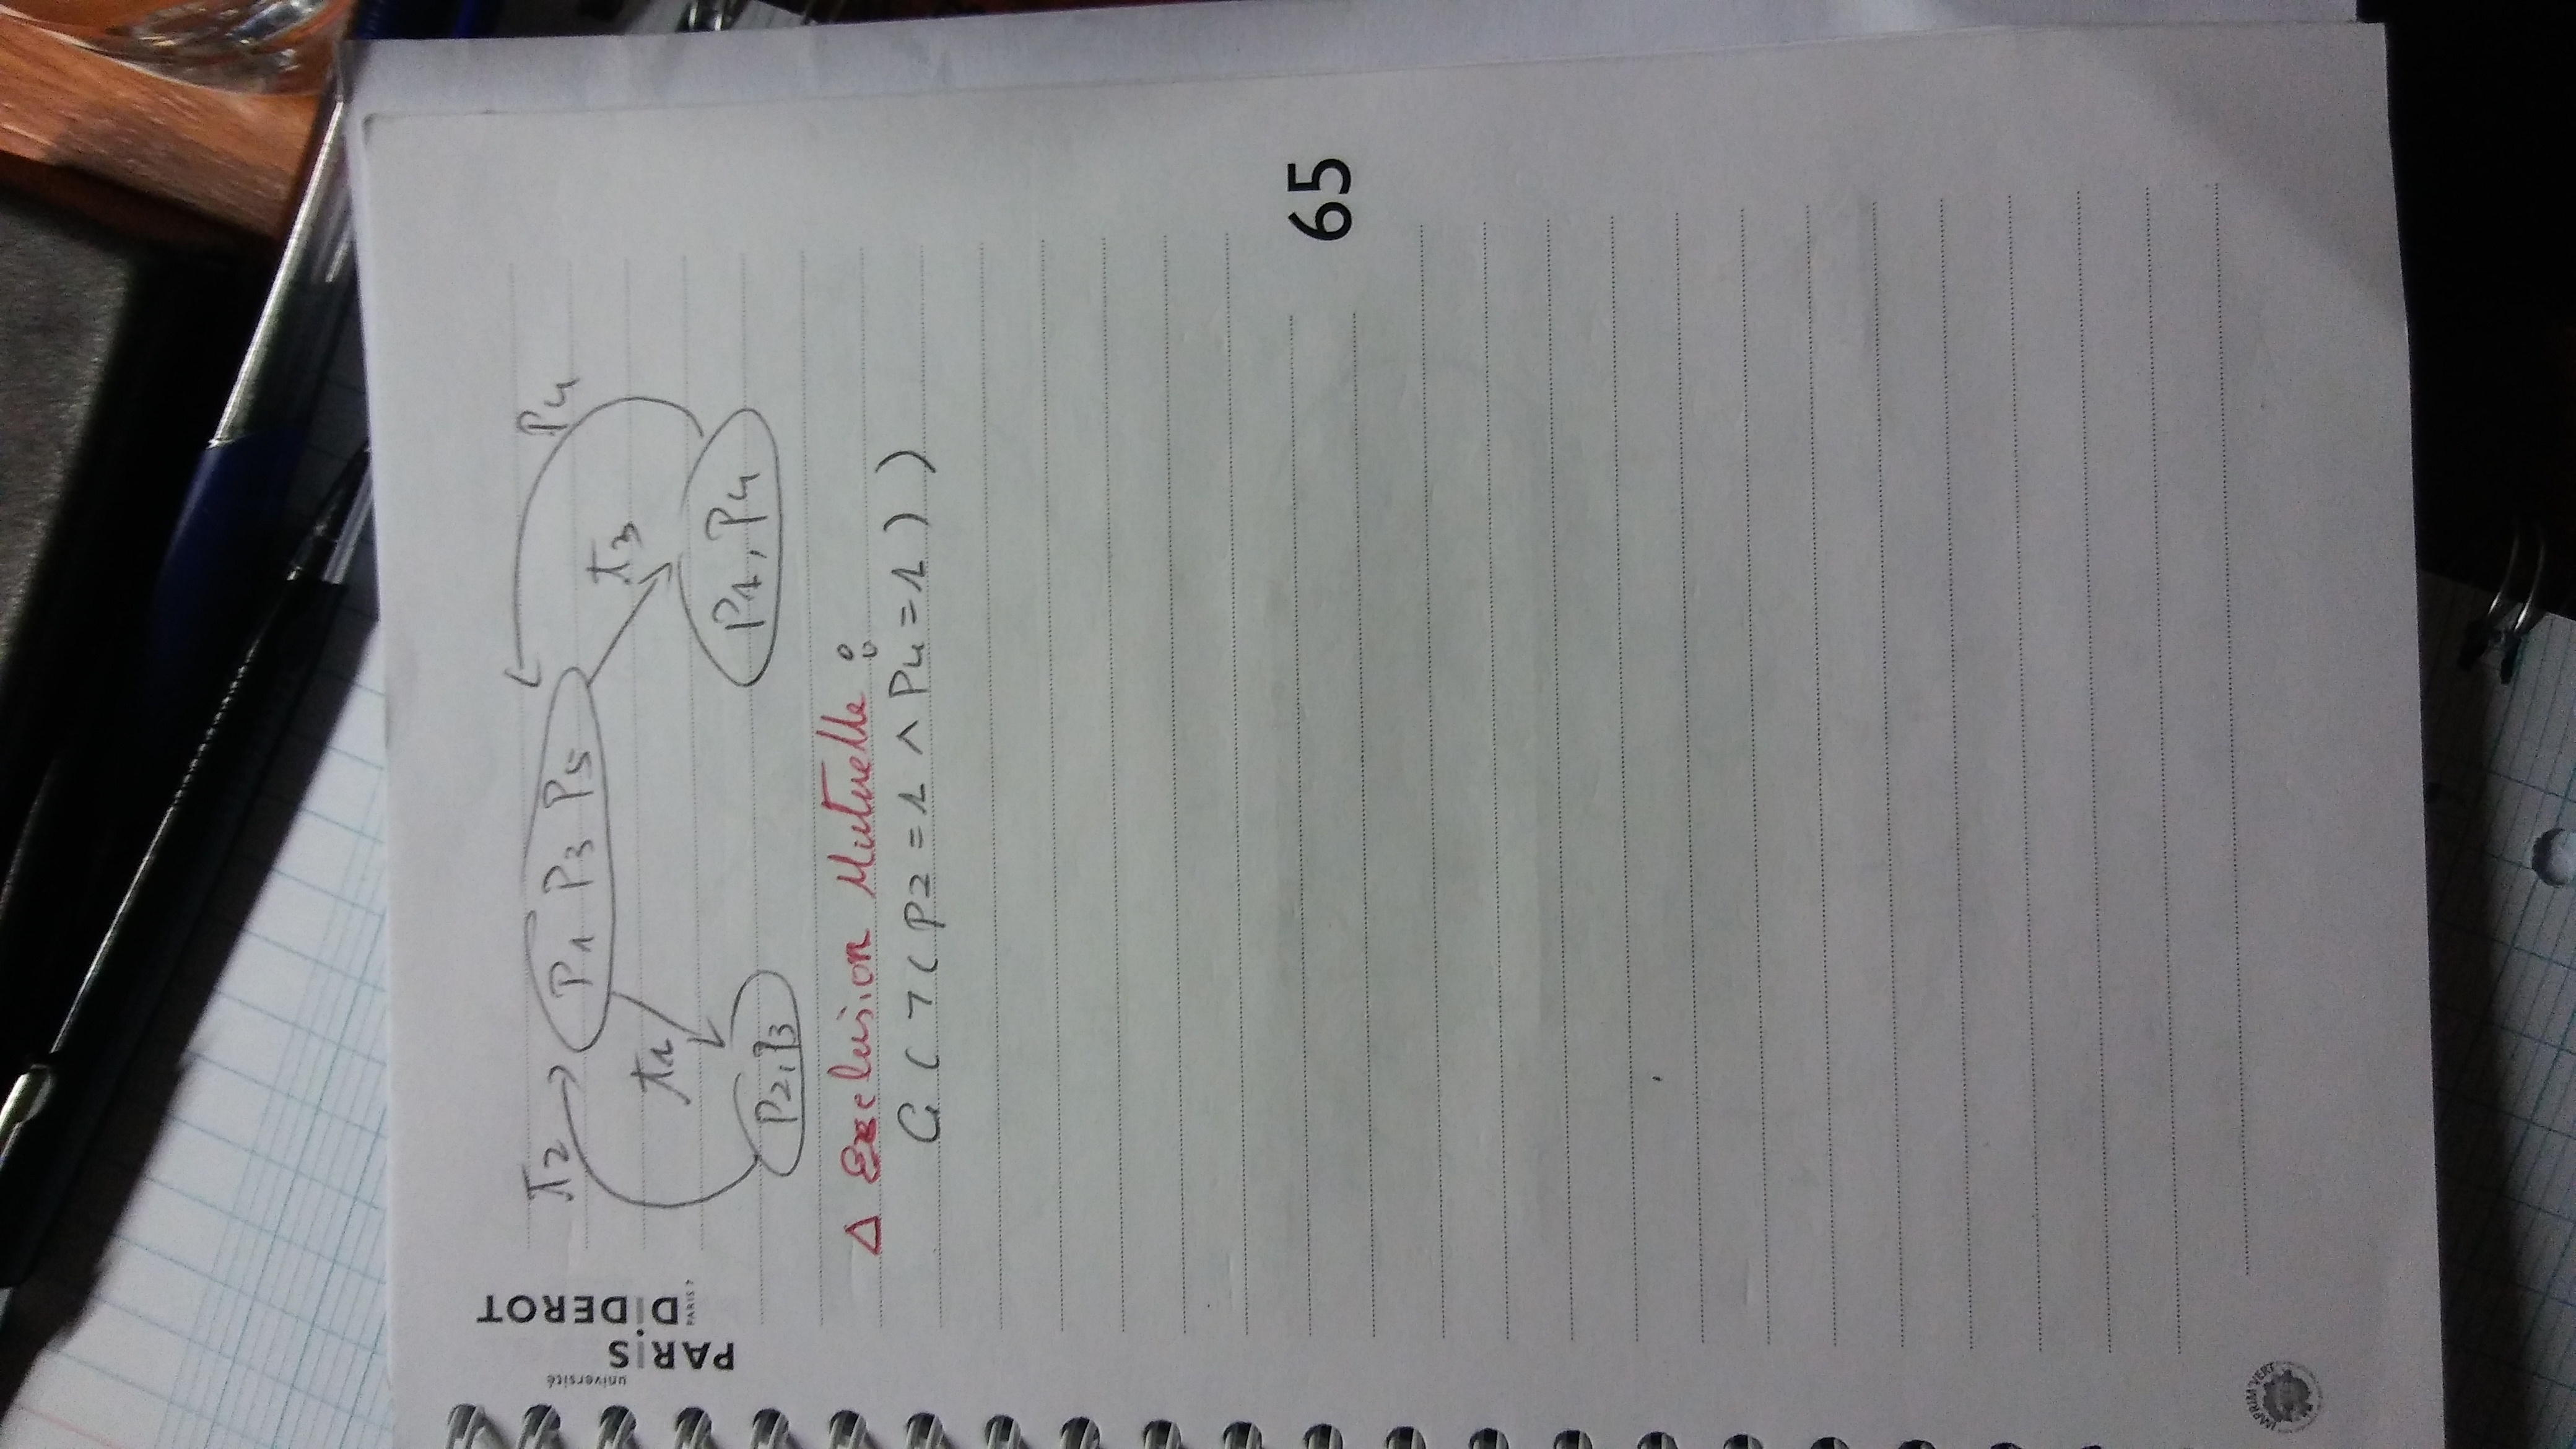 université
PARIS
DIDEROT
PARIS 7
t2
P1 P3 P5
P4
t1
t3
P2, P3
P1, P4
Δ Exclusion Mutuelle :
G ( ¬ ( P2 = 1 ∧ P4 = 1 ) )
65
IMPRIM'VERT